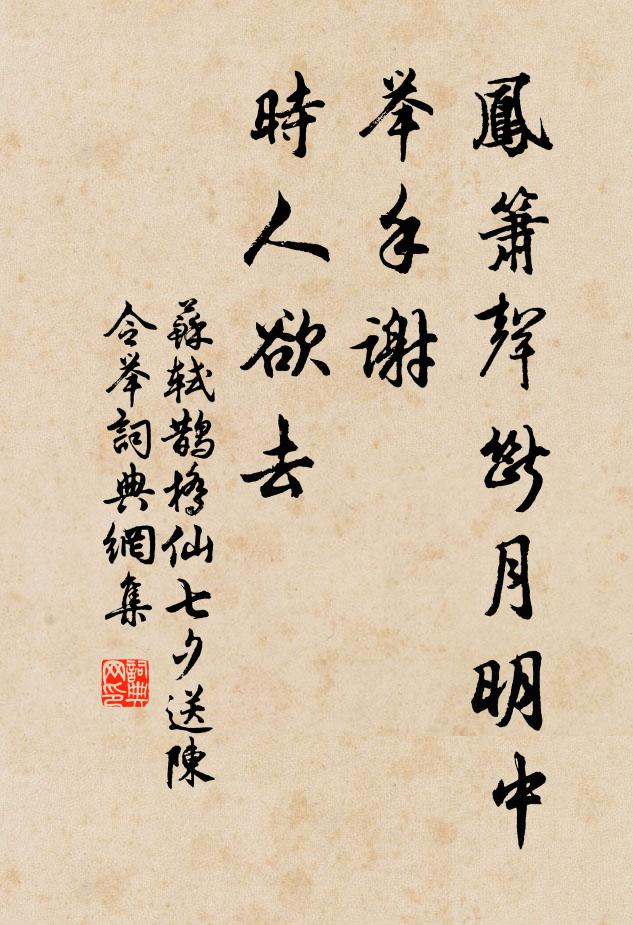 鳳簫聲斷月明中
举手謝
時人欲去
蘇軾鵲橋仙七夕送陳
令举詞典網集
詞典网印